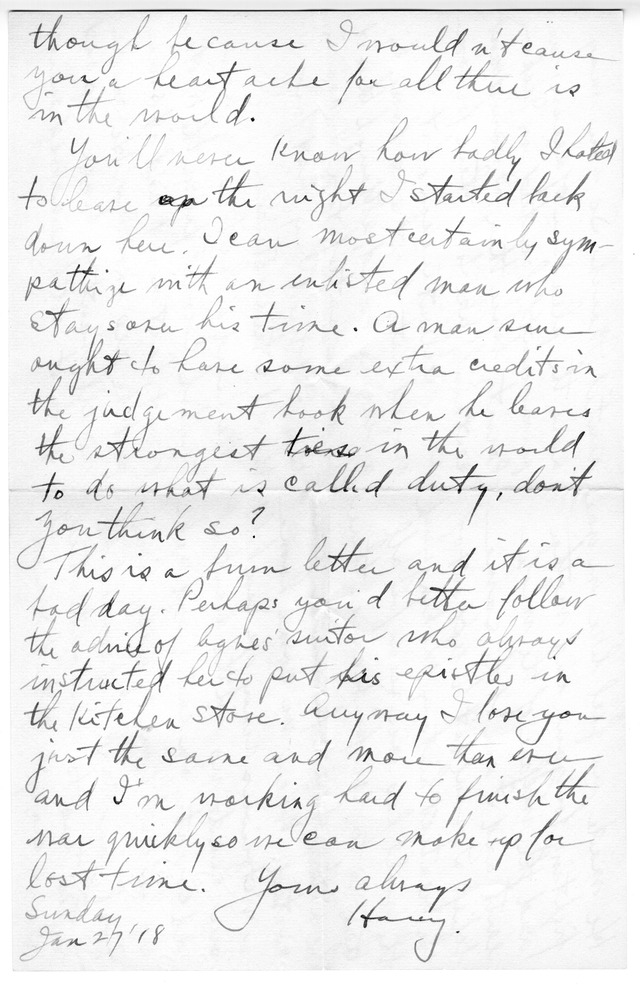 though because I wouldn't cause
you a heart ache for all there is
in the world.
You'll never know how badly I hated
to leave the night I started back
down here. I can most certainly sym-
pathize with an enlisted man who
stays over his time. A man sure
ought to have some extra credits in
the judgement book when he leaves
the strongest ties in the world
to do what is called duty, don't
you think so?
This is a bum letter and it is a
bad day. Perhaps you'd better follow
the advice of Agnes' suitor who always
instructed her to put his epistles in
the kitchen stove. Anyway I love you
just the same and more than ever
and I'm working hard to finish the
war quickly so we can make up for
lost time. Yours always
Harry.
Sunday
Jan 27 '18